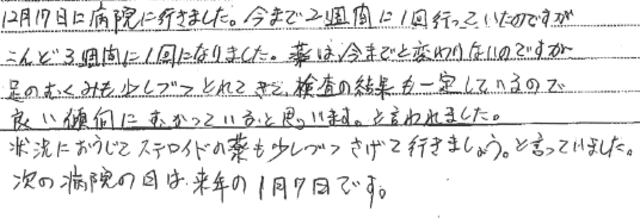 12月17日に病院に行きました。今まで2週間に1回行っていたのですが
こんど3週間に1回になりました。薬は今までと変わりないのですが
足のむくみも少しづつとれてきて、検査の結果も一定しているので
良い傾向にむかっていると思います。と言われました。
状況におうじてステロイドの薬も少しづつさげて行きましょう。と言っていました。
次の病院の日は来年の1月7日です。